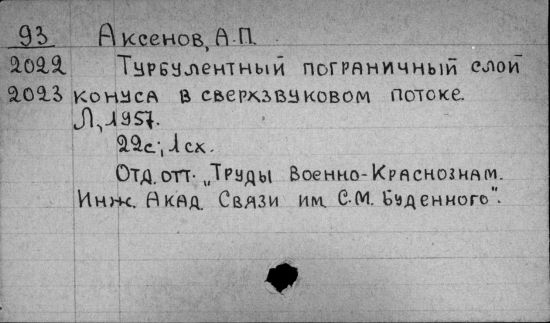 93 Аксенов, А.П.
2022 Турбулентный пограничный слой
2023 конуса в сверхзвуковом потоке.
Л., 1957.
22с; 1 сх.
Отд. отт. „Труды Военно-Краснознам.
Инж. Акад. Связи им. С.М. Буденного".